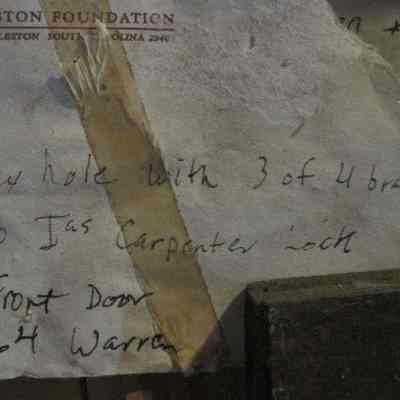 STON FOUNDATION
LESTON SOUTH OLINA 2940
hole with 3 of 4 bra
Jas Carpenter Lock
Front Door
64 Warren